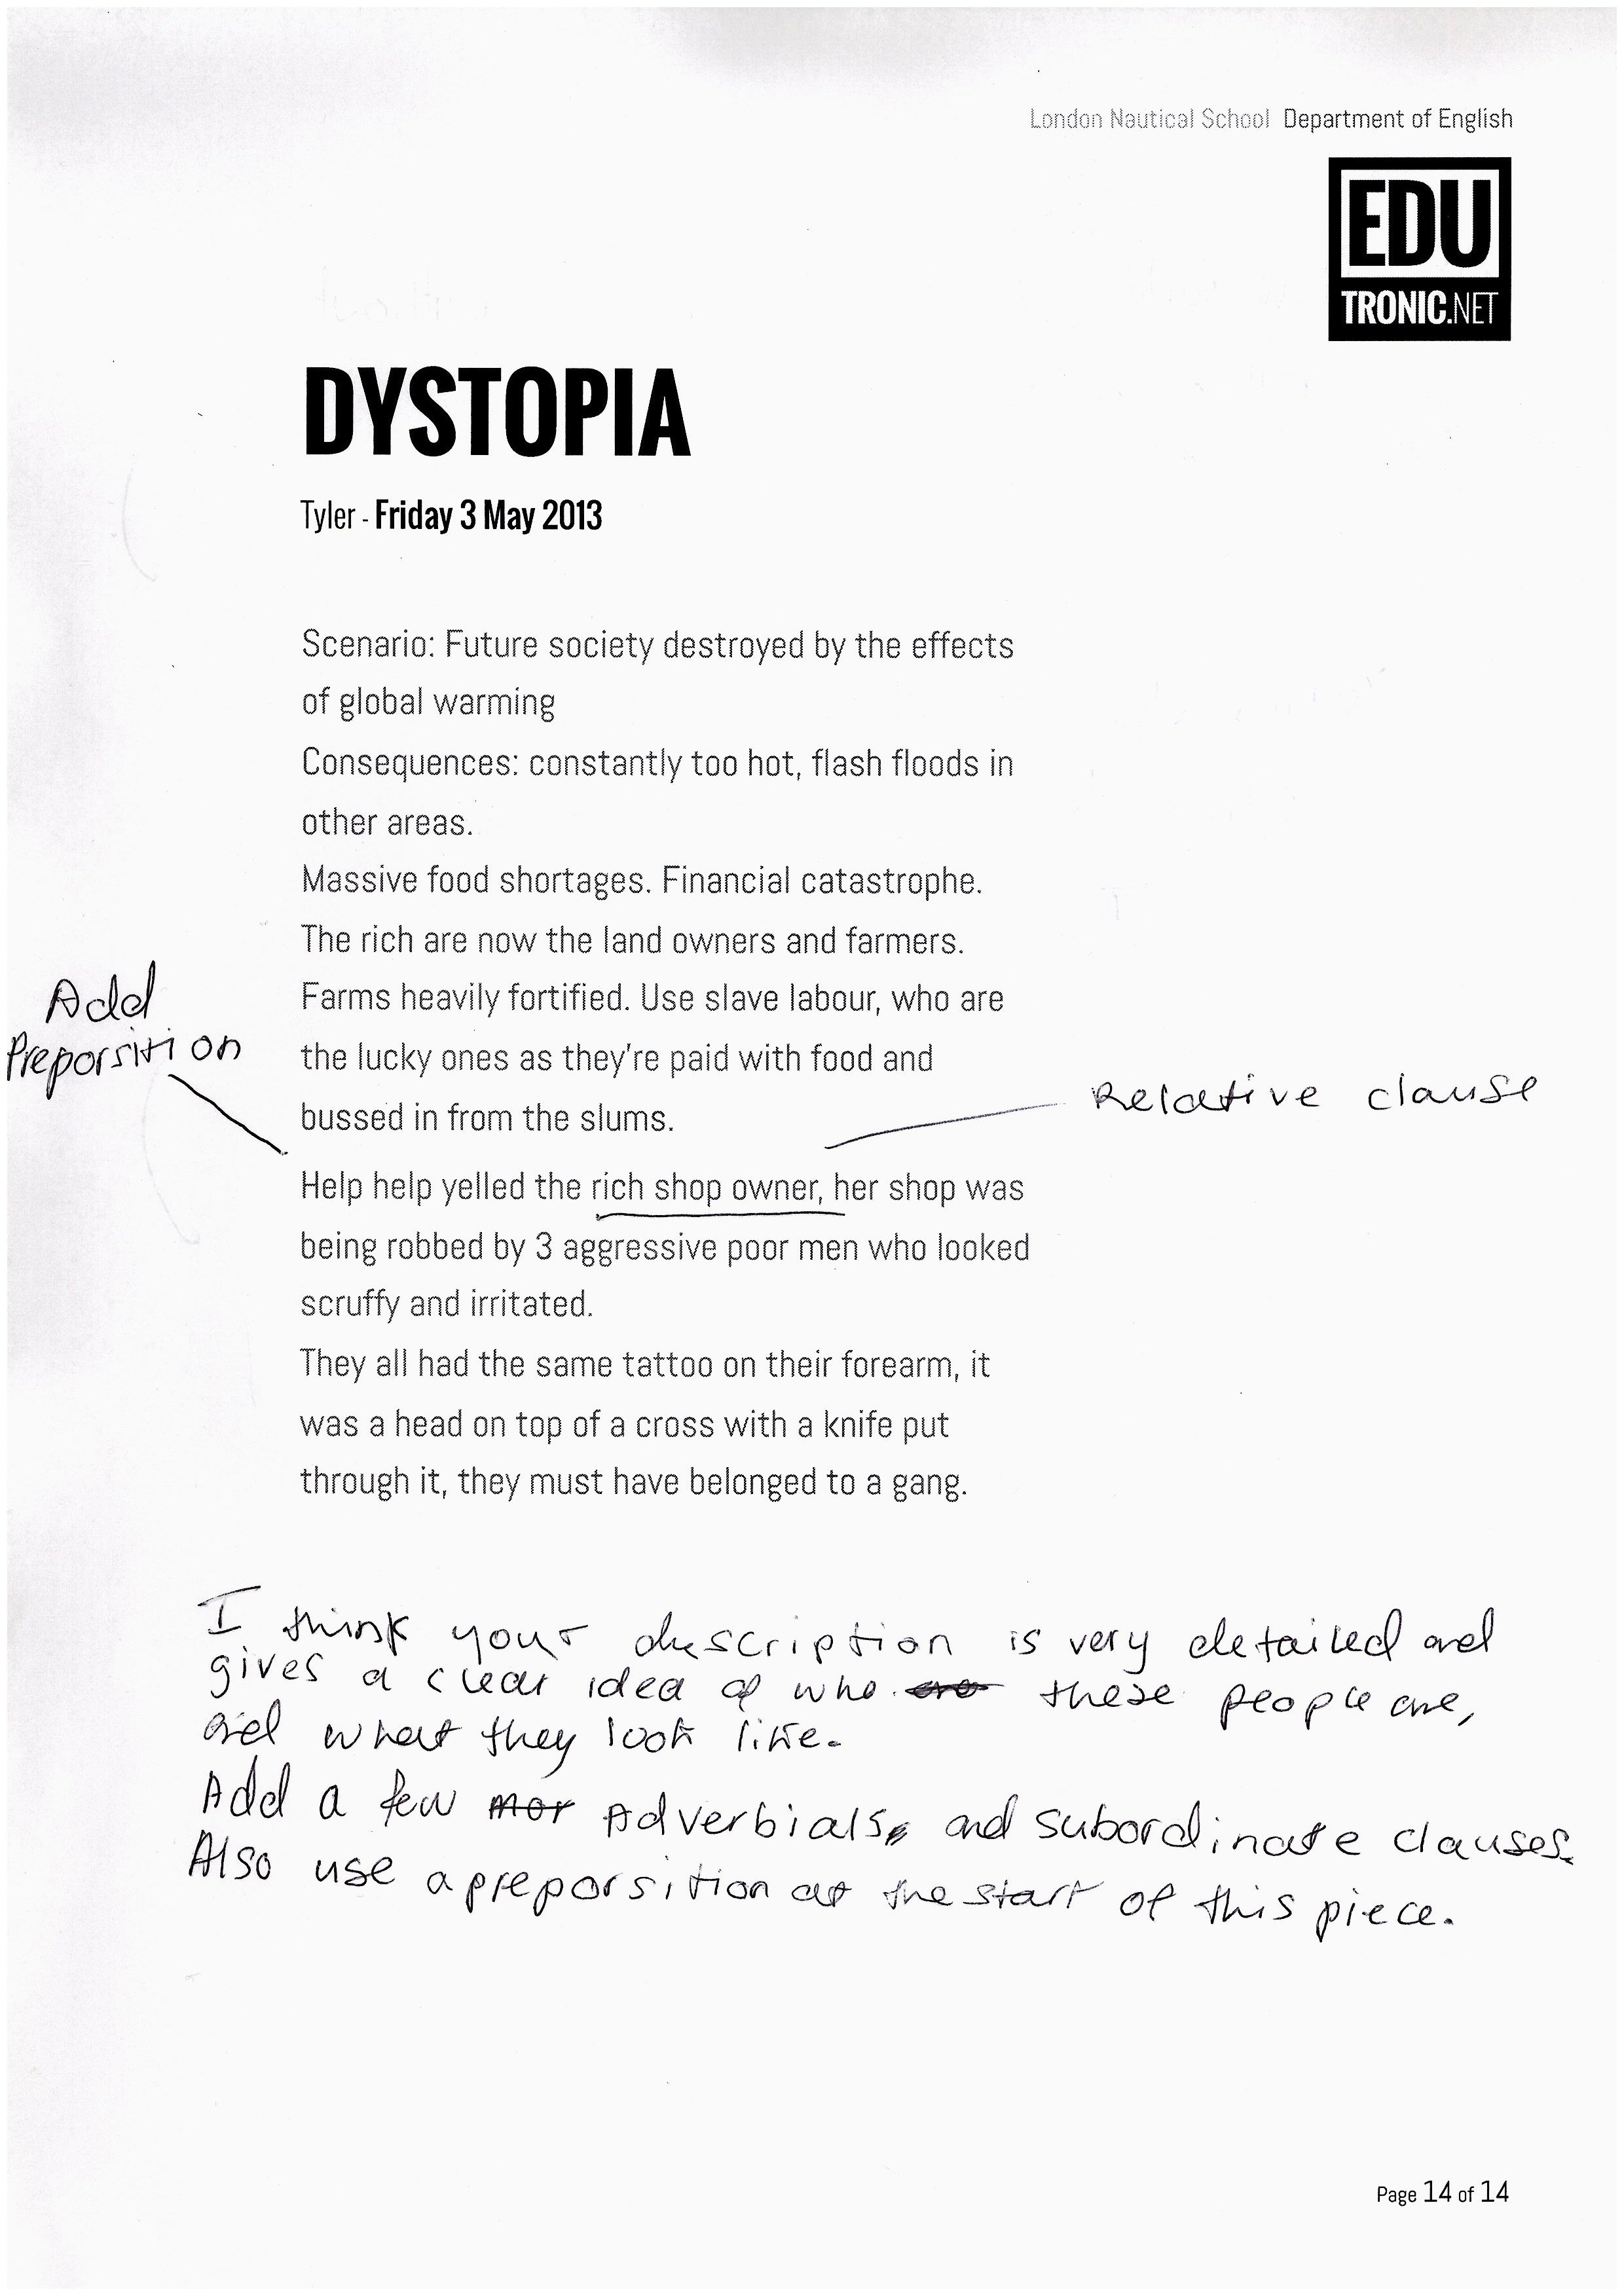 London Nautical School Department of English
EDU
TRONIC.NET
DYSTOPIA
Tyler - Friday 3 May 2013
Scenario: Future society destroyed by the effects
of global warming
Consequences: constantly too hot, flash floods in
other areas.
Massive food shortages. Financial catastrophe.
The rich are now the land owners and farmers.
Farms heavily fortified. Use slave labour, who are
the lucky ones as they're paid with food and
bussed in from the slums.
Add
Preporsition
Relative clause
Help help yelled the rich shop owner, her shop was
being robbed by 3 aggressive poor men who looked
scruffy and irritated.
They all had the same tattoo on their forearm, it
was a head on top of a cross with a knife put
through it, they must have belonged to a gang.
I think your description is very detailed and
gives a clear idea of who these people are,
and what they look like.
Add a few mor Adverbials and subordinate clauses.
Also use a preporsition at the start of this piece.
Page 14 of 14